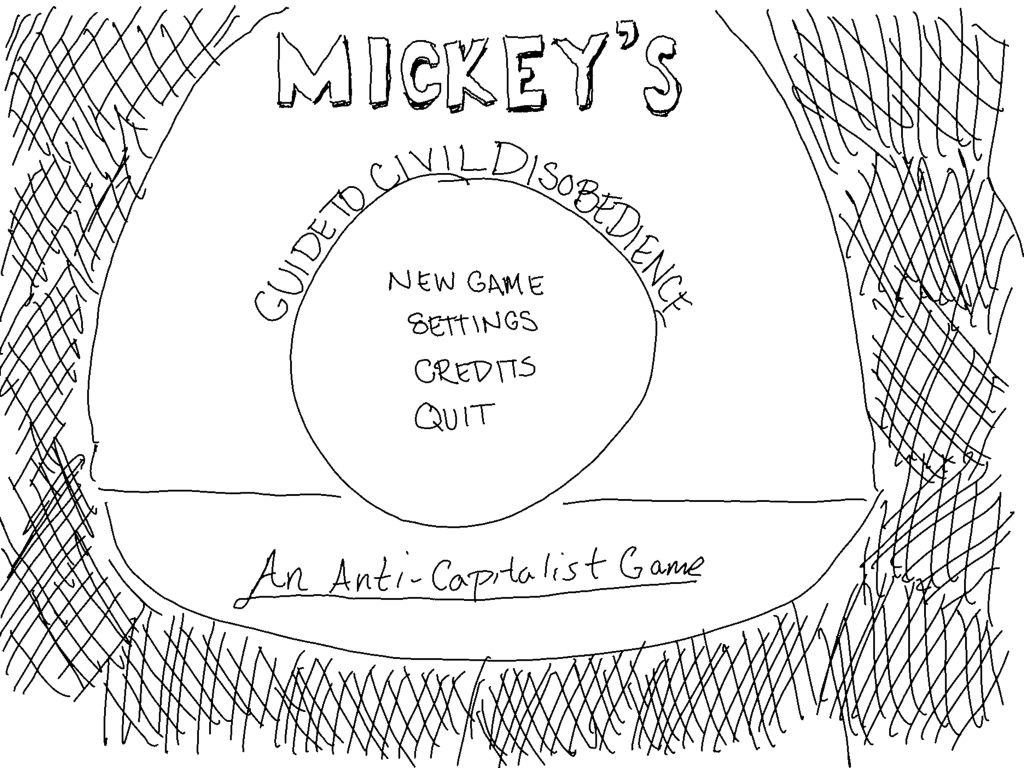 MICKEY'S
GUIDE TO CIVIL DISOBEDIENCE
NEW GAME
SETTINGS
CREDITS
QUIT
An Anti-Capitalist Game